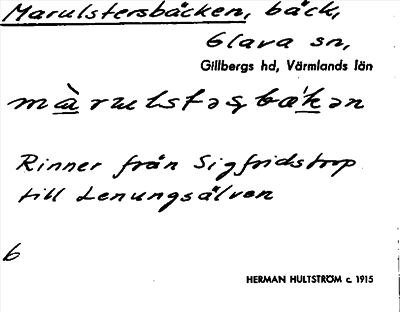 Marulstersbäcken, bäck,
Glava sn,
Gillbergs hd, Värmlands län
màrulstəʂbækən
Rinner från Sigfridstorp
till Lenungsälven
6
HERMAN HULTSTRÖM c. 1915